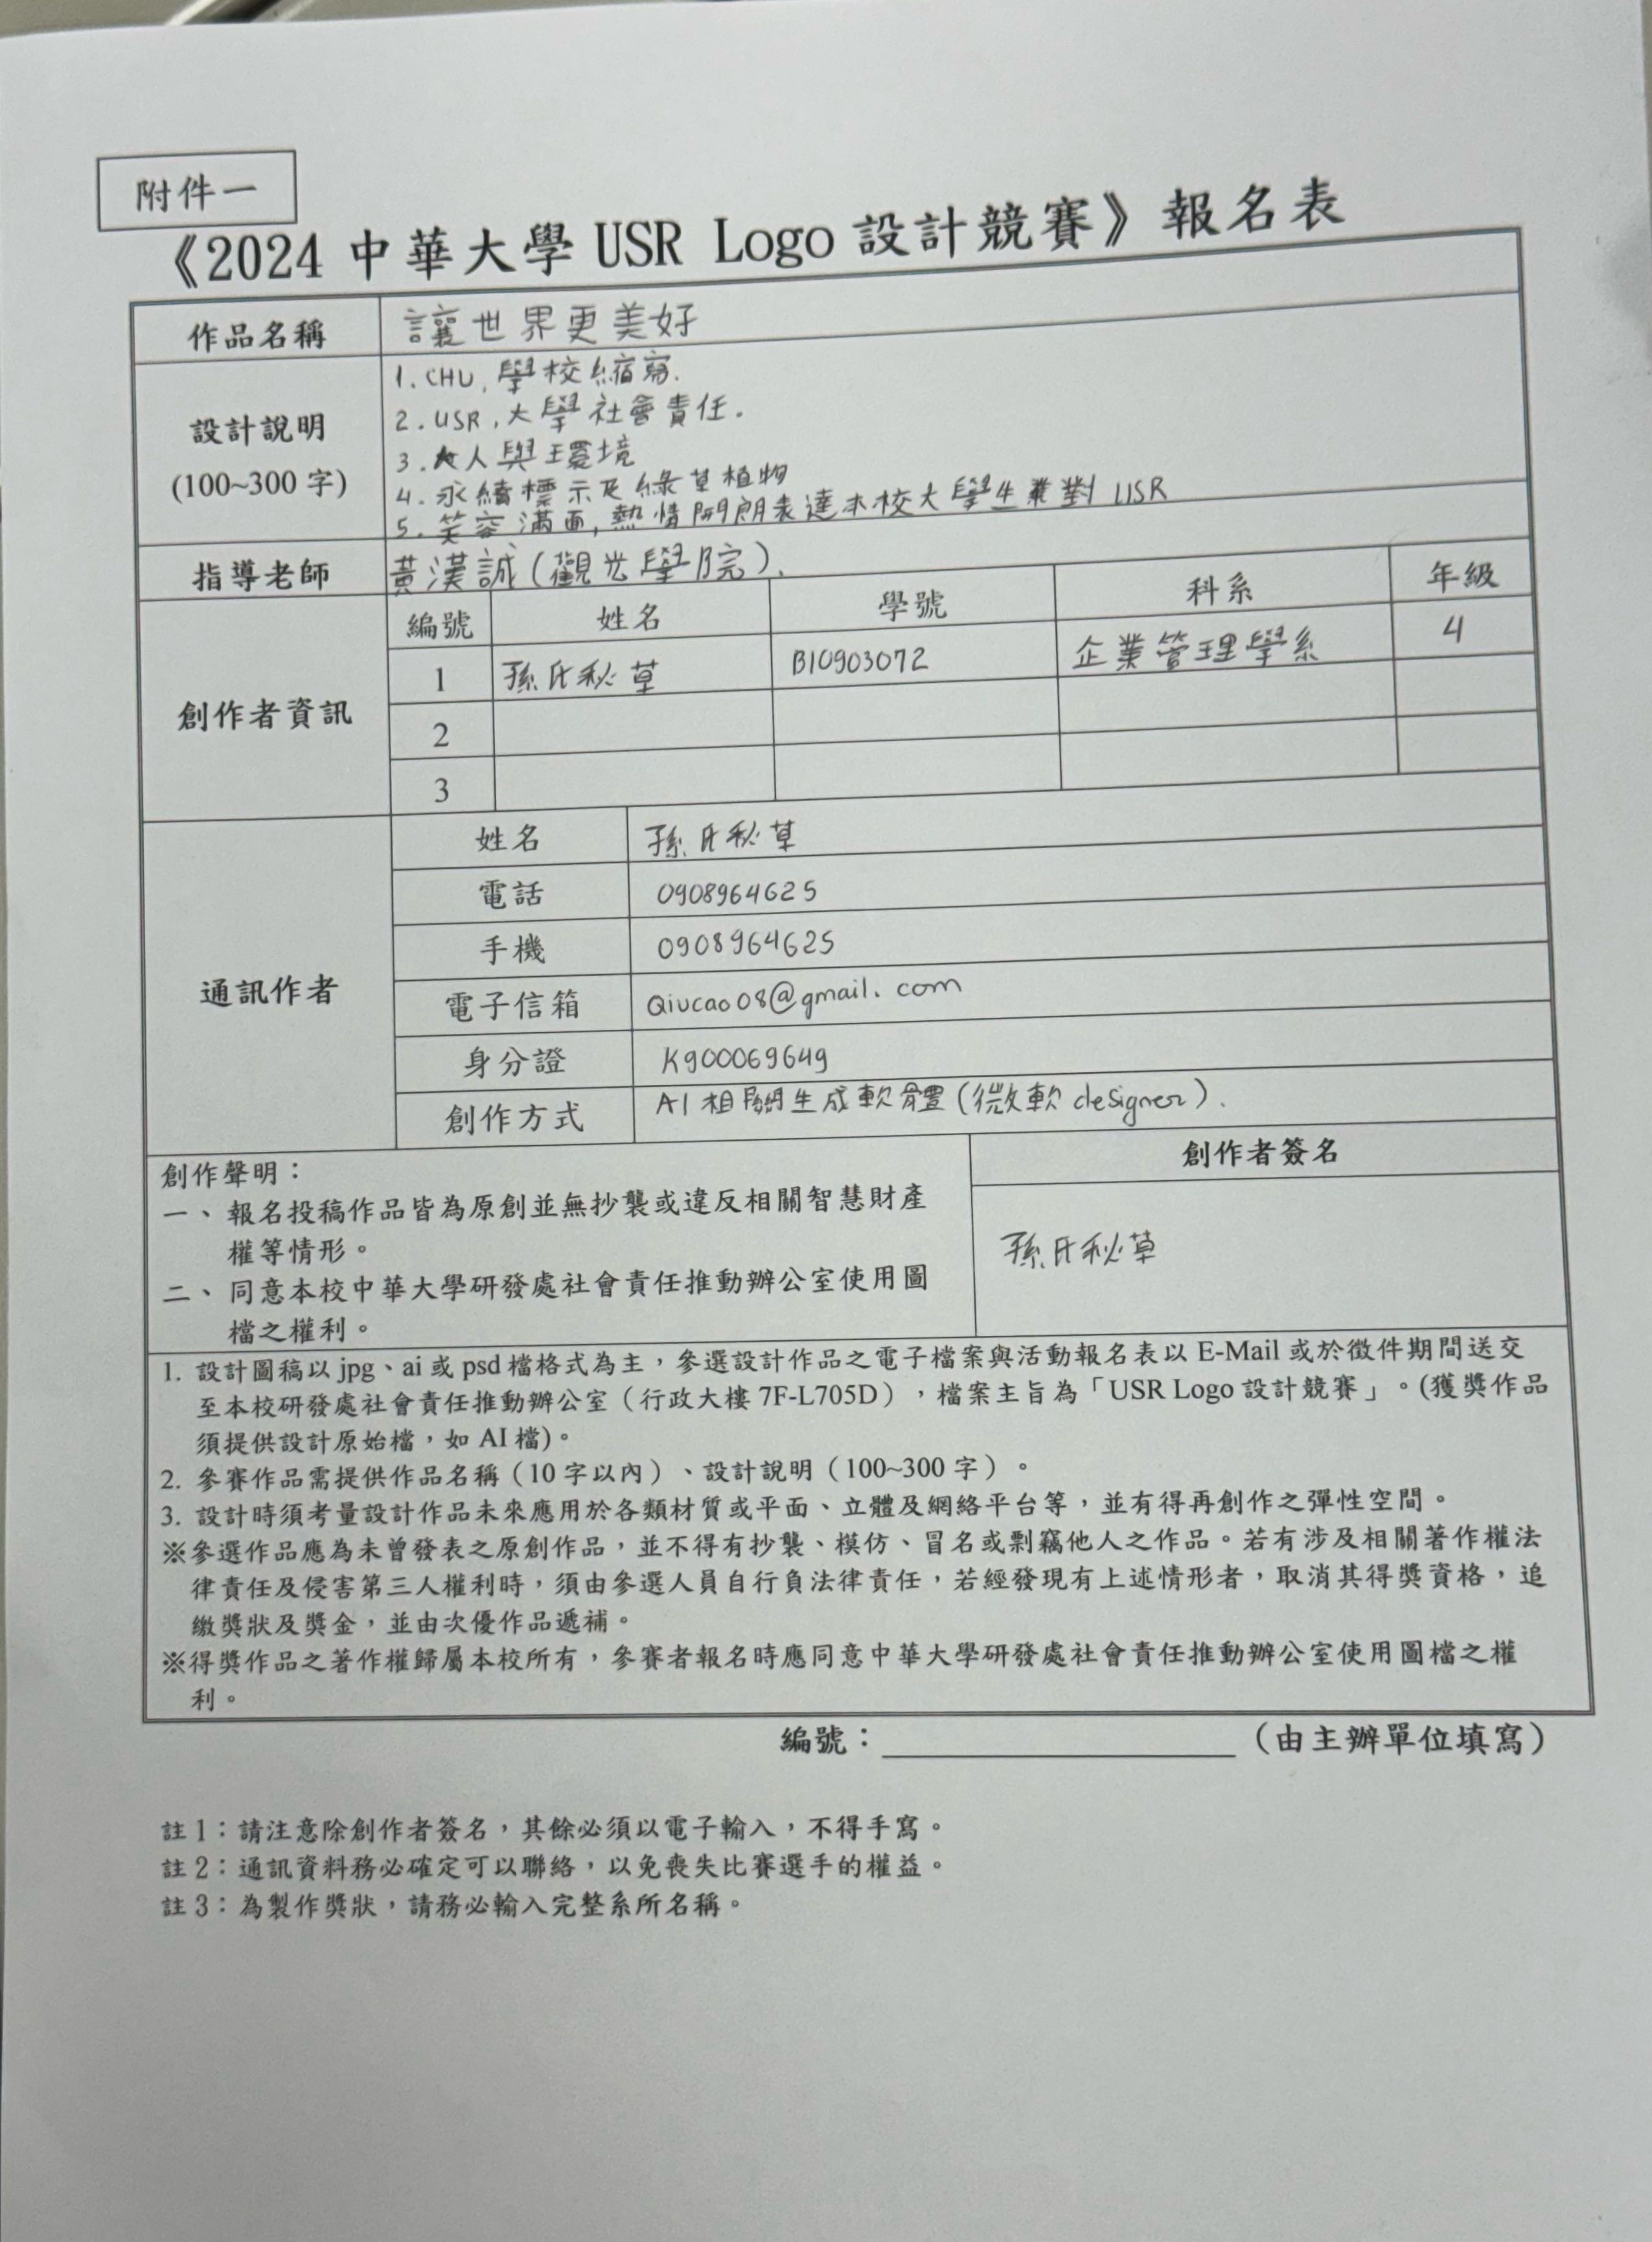 附件一
《2024 中華大學 USR Logo 設計競賽》報名表
作品名稱 讓世界更美好
設計說明
(100~300 字)
1. CHU, 學校縮寫.
2. USR, 大學社會責任.
3. 人與環境
4. 永續標示及綠草植物
5. 笑容滿面, 熱情開朗表達本校大學生業對 USR
指導老師 黃漢誠(觀光學院).
創作者資訊
編號 姓名 學號 科系 年級
1 孫氏秋草 B10903072 企業管理學系 4
2
3
通訊作者
姓名 孫氏秋草
電話 0908964625
手機 0908964625
電子信箱 Qiucao08@gmail.com
身分證 K900069649
創作方式 AI相關生成軟體(微軟 designer).
創作聲明：
一、報名投稿作品皆為原創並無抄襲或違反相關智慧財產
權等情形。
二、同意本校中華大學研發處社會責任推動辦公室使用圖
檔之權利。
創作者簽名
孫氏秋草
1. 設計圖稿以 jpg、ai 或 psd 檔格式為主，參選設計作品之電子檔案與活動報名表以 E-Mail 或於徵件期間送交
至本校研發處社會責任推動辦公室（行政大樓 7F-L705D），檔案主旨為「USR Logo 設計競賽」。(獲獎作品
須提供設計原始檔，如 AI 檔)。
2. 參賽作品需提供作品名稱（10 字以內）、設計說明（100~300 字）。
3. 設計時須考量設計作品未來應用於各類材質或平面、立體及網絡平台等，並有得再創作之彈性空間。
※參選作品應為未曾發表之原創作品，並不得有抄襲、模仿、冒名或剽竊他人之作品。若有涉及相關著作權法
律責任及侵害第三人權利時，須由參選人員自行負法律責任，若經發現有上述情形者，取消其得獎資格，追
繳獎狀及獎金，並由次優作品遞補。
※得獎作品之著作權歸屬本校所有，參賽者報名時應同意中華大學研發處社會責任推動辦公室使用圖檔之權
利。
編號：＿＿＿＿＿＿（由主辦單位填寫）
註 1：請注意除創作者簽名，其餘必須以電子輸入，不得手寫。
註 2：通訊資料務必確定可以聯絡，以免喪失比賽選手的權益。
註 3：為製作獎狀，請務必輸入完整系所名稱。